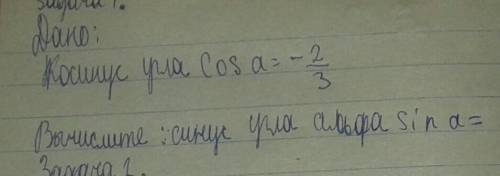 Задача 1.
Дано:
Косинус угла cos a = - 2/3
Вычислите: синус угла альфа sin a =
Задача 2.